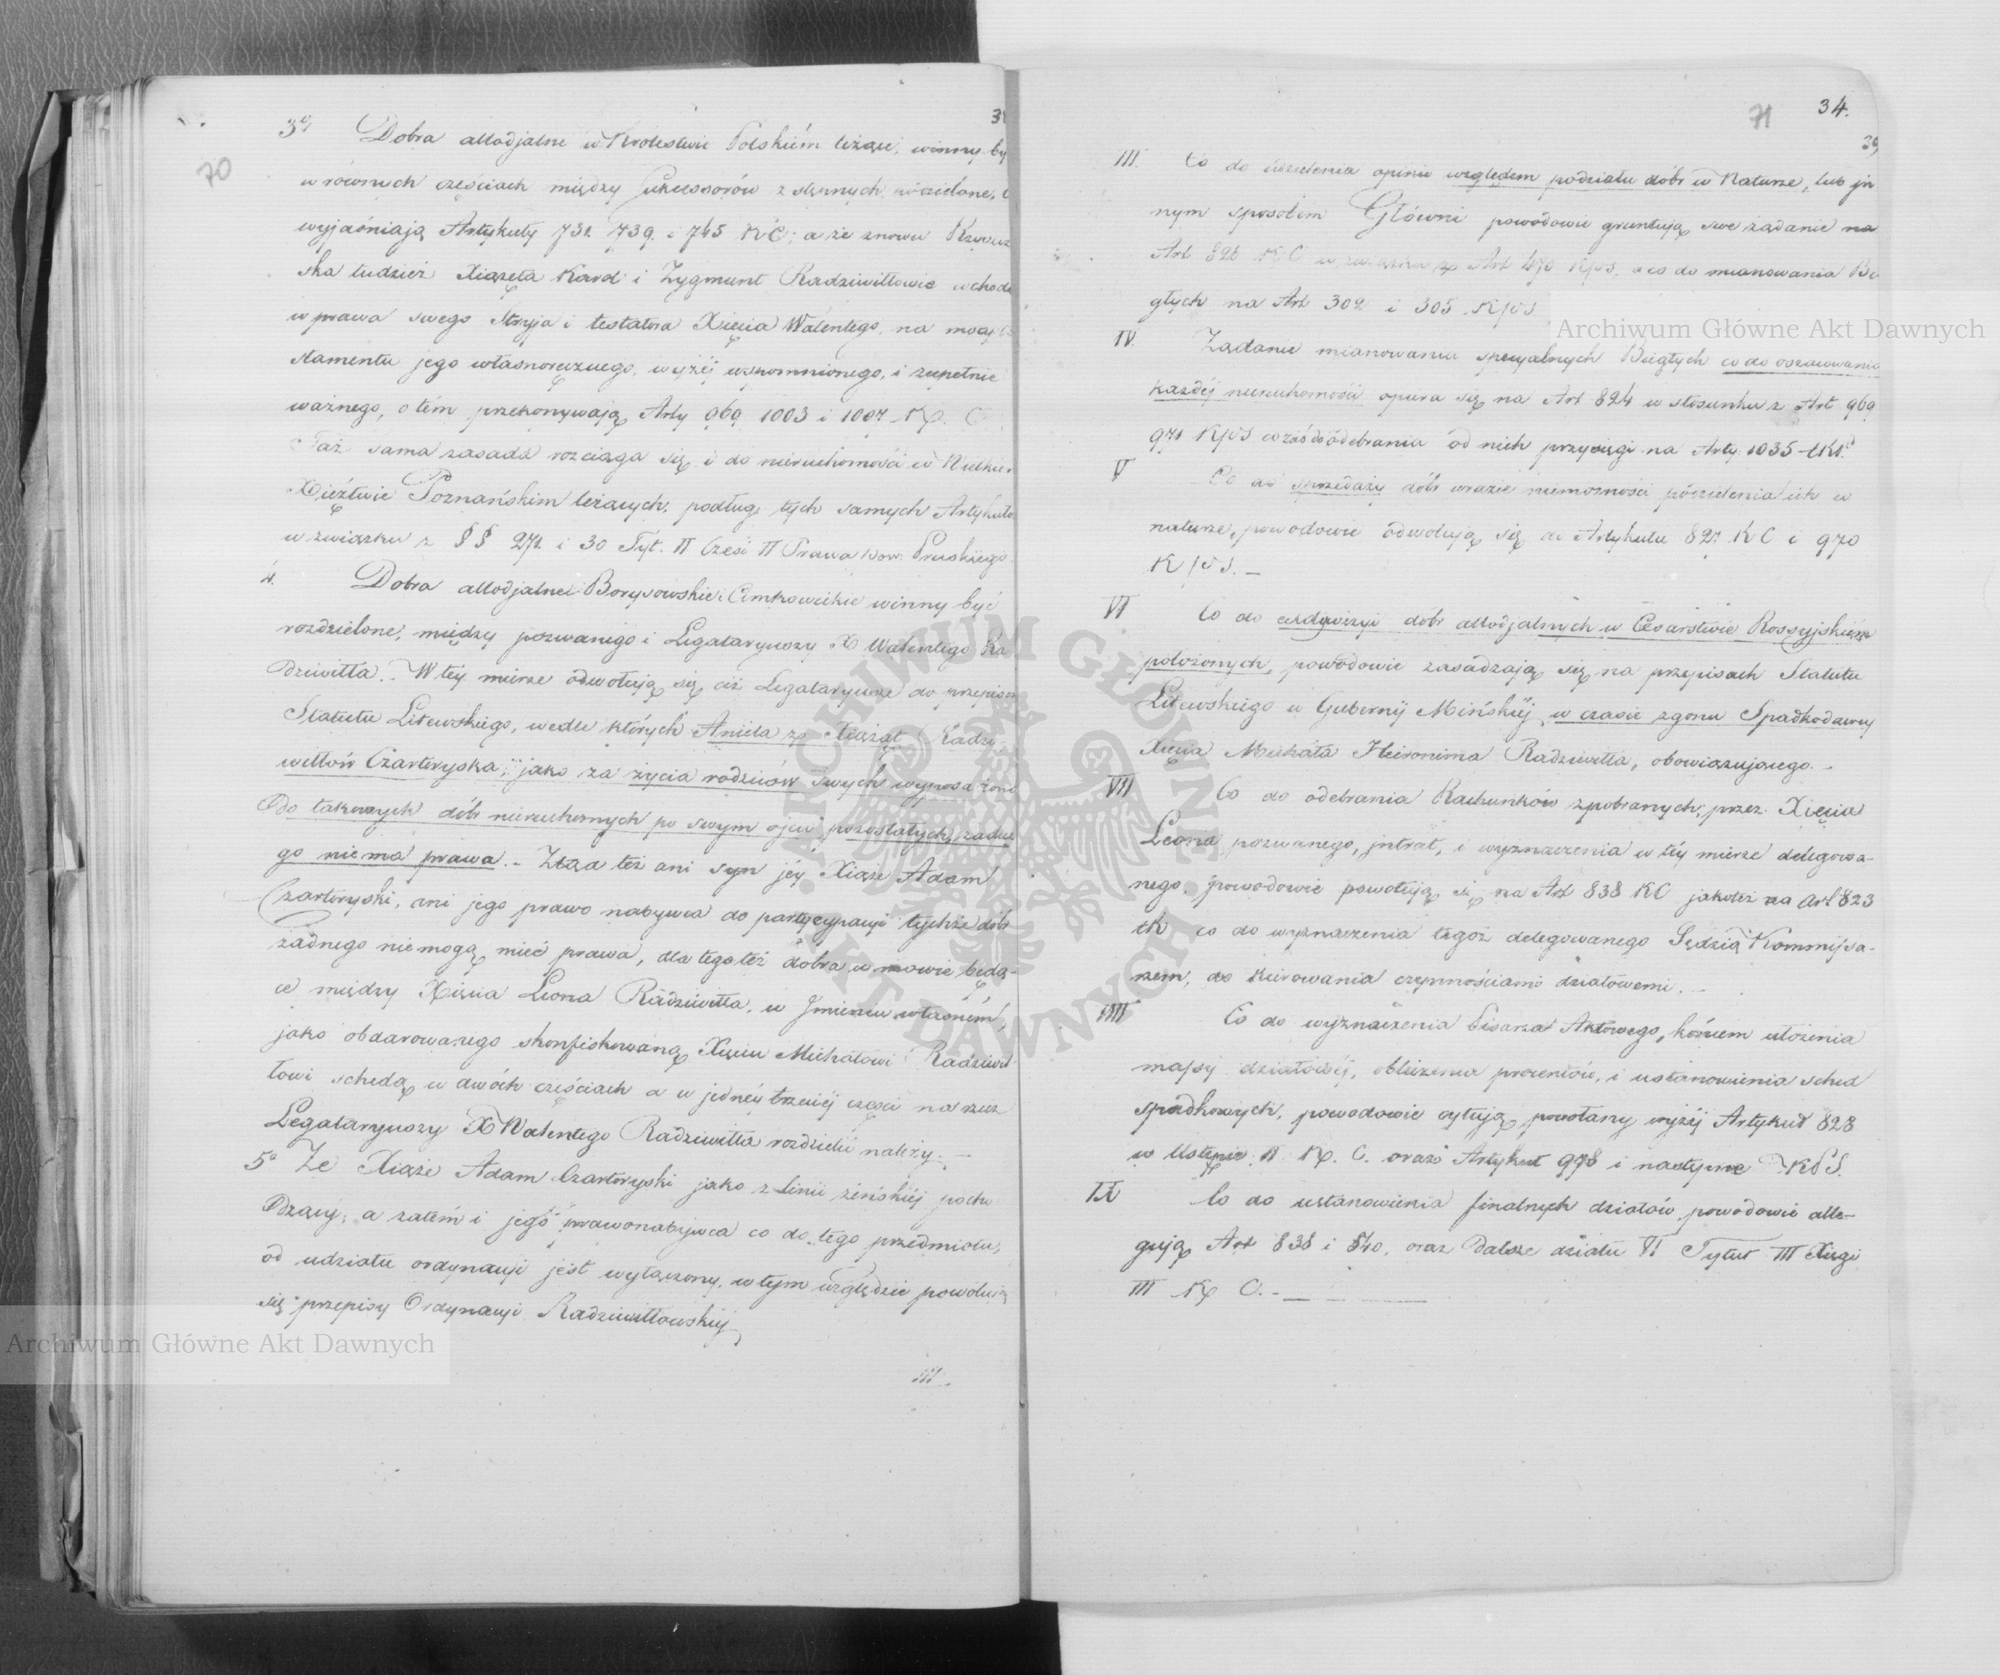 70
3º Dobra allodjalne w Krolestwie Polskiém leżące, winny
w równych częściach między Sukcessorów zstępnych
wyjaśniają Artykuły 731. 739. i 745 KC; a że znowu
ska tudzież Xiążęta Karol i Zygmunt Radziwiłłowie wchodzą
w prawa swego Stryja i testatora Xięcia Walentego, na mocy
stamentu jego własnoręcznego, wyżéj wspomnionego, i zupełnie
ważnego, o tém przekonywają Arty 969. 1003 i 1007. K. C.
Taż sama zasada rozciąga się i do nieruchomości w Wielkiem
Xięztwie Poznańskim leżących, podług tych samych Artykułów
w związku z §§ 272. i 30 Tyt. II Część II Prawa Pruskiego.
4. Dobra allodjalne Borysowskie i winny być
rozdzielone, między pozwanego i Legataryuszy X Walentego Ra
dziwiłła. – W téy mierze odwołują się ciż Legataryusze do przepisów
Statutu Litewskiego, wedle których Aniela z Xiążąt Radzi-
wiłłów Czartoryska, jako za życia rodziców swych wyposażona
do takowych dóbr nieruchomych po swym ojcu pozostałych, żadne
go niema prawa. – Ztąd też ani syn jéy Xiąże Adam
Czartoryski, ani jego prawo nabywca do partycypacyi tychże dóbr
żadnego niemogą mieć prawa, dla tego też dobra w mowie będą-
ce między Xięcia Leona Radziwiłła, w Jmieniu własném,
jako obdarowanego skonfiskowaną Xięciu Michałowi Radziwił
łowi schedą w dwóch częściach a w jednéy trzeciéj części na rzecz
Legataryuszy X Walentego Radziwiłła rozdzielić należy. –
5º Że Xiąże Adam Czartoryski jako z linii żeńskiéj pocho
dzący, a zatém i jego prawonabywca co do tego przedmiotu,
od udziału ordynacyi jest wyłączony, w tym względzie powołują
się przepisy Ordynacyi Radziwiłłowskiéj,
III.
71 34.
39
III. Co do udzielenia opinii względem podziału dóbr w Naturze, lub in
nym sposobem Główni powodowie gruntują swe żądanie na
Art 826 KC w związku z Art 470 KPS. a co do mianowania Bie
głych na Art 302 i 305 KPS
IV. Żądanie mianowania specyalnych Biegłych co do oszacowania
każdéj nieruchomości opiera się na Art 824 w stosunku z Art 969
971 KPS co zaś do odebrania od nich przysięgi na Arty 1035 tKd
V Co do sprzedaży dóbr w razie niemożności podzielenia ich w
naturze, powodowie odwołują się do Artykułu 827. KC i 970
KPS. –
VI Co do dóbr allodjalnych w Cesarstwie Rossyjskiém
położonych, powodowie zasadzają się na przepisach Statutu
Litewskiego w Gubernij Mińskiéj, w czasie zgonu Spadkodawcy
Xięcia Michała Hieronima Radziwiłła, obowiązującego. –
VII Co do odebrania Rachunków z pobranych, przez Xięcia
Leona pozwanego, jntrat, i wyznaczenia w téj mierze delegowa-
nego, powodowie powołują się na Art 838 KC jakoteż na Art 823
tK co do wyznaczenia tegoż delegowanego Sędzią Kommissa-
rzem, do kierowania czynnościami działowemi. –
VIII Co do wyznaczenia Pisarza Aktowego, końcem ułożenia
massy działowéj, obliczenia procentów, i ustanowienia sched
spadkowych, powodowie cytują powołany wyżéj Artykuł 828
w Ustępie II K. C. oraz Artykuł 978 i następne KPS.
IX Co do ustanowienia finalnych działów powodowie alle-
gują Art 838 i 840, oraz Dalsze działu VI Tytuł III Xięgi
III K C. –
Archiwum Główne Akt Dawnych
Archiwum Główne Akt Dawnych
ARCHIWUM GŁÓWNE AKT DAWNYCH